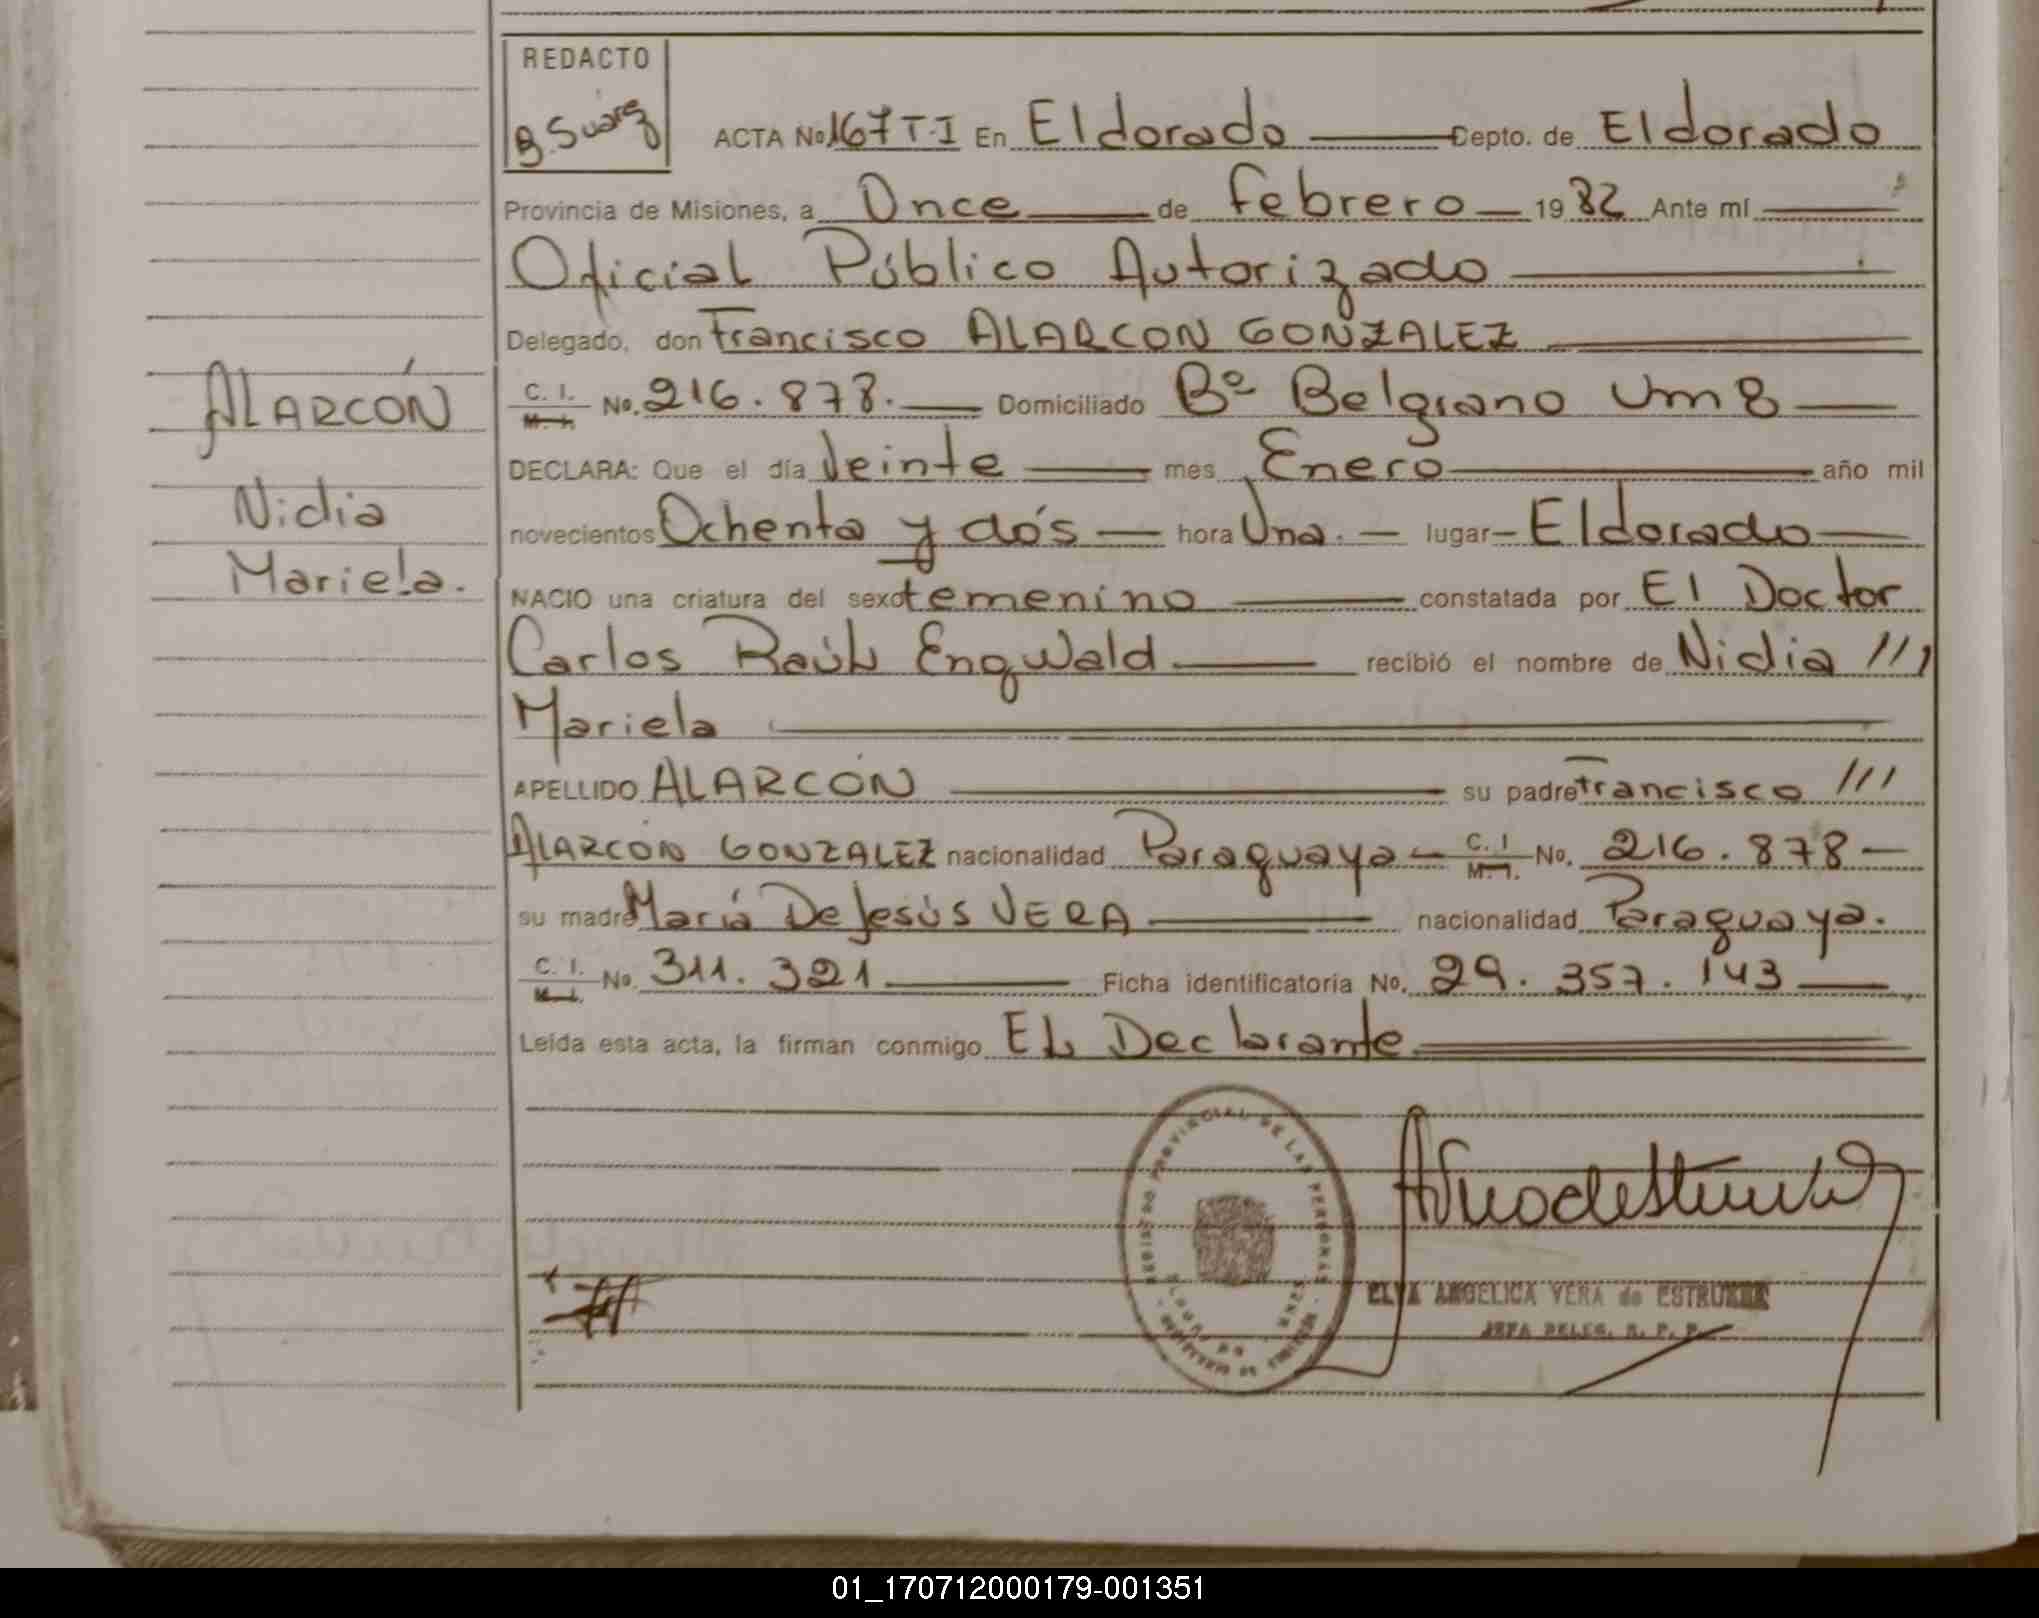 REDACTO
B. Suárez
ACTA No 167 T·I En Eldorado Depto. de Eldorado
Provincia de Misiones, a Once de febrero 1982 Ante mí
Oficial Público Autorizado
Delegado, don Francisco ALARCON GONZALEZ
C. I. M. I. No. 216.878. Domiciliado Bº Belgrano Km 8
ALARCÓN
DECLARA: Que el día Veinte mes Enero año mil
Nidia
novecientos Ochenta y dós hora Una. lugar Eldorado
Mariela.
NACIO una criatura del sexo femenino constatada por El Doctor
Carlos Raúl Engwald recibió el nombre de Nidia ///
Mariela
APELLIDO ALARCÓN su padre Francisco ///
ALARCÓN GONZALEZ nacionalidad Paraguaya C. I M. I. No. 216.878
su madre María De Jesús VERA nacionalidad Paraguaya.
C. I. M. I. No. 311.321 Ficha identificatoria No. 29.357.143
Leída esta acta, la firman conmigo El Declarante
REGISTRO PROVINCIAL DE LAS PERSONAS
ELVA ANGELICA VERA de
JEFA DELEG. R. P. P.
01_170712000179-001351